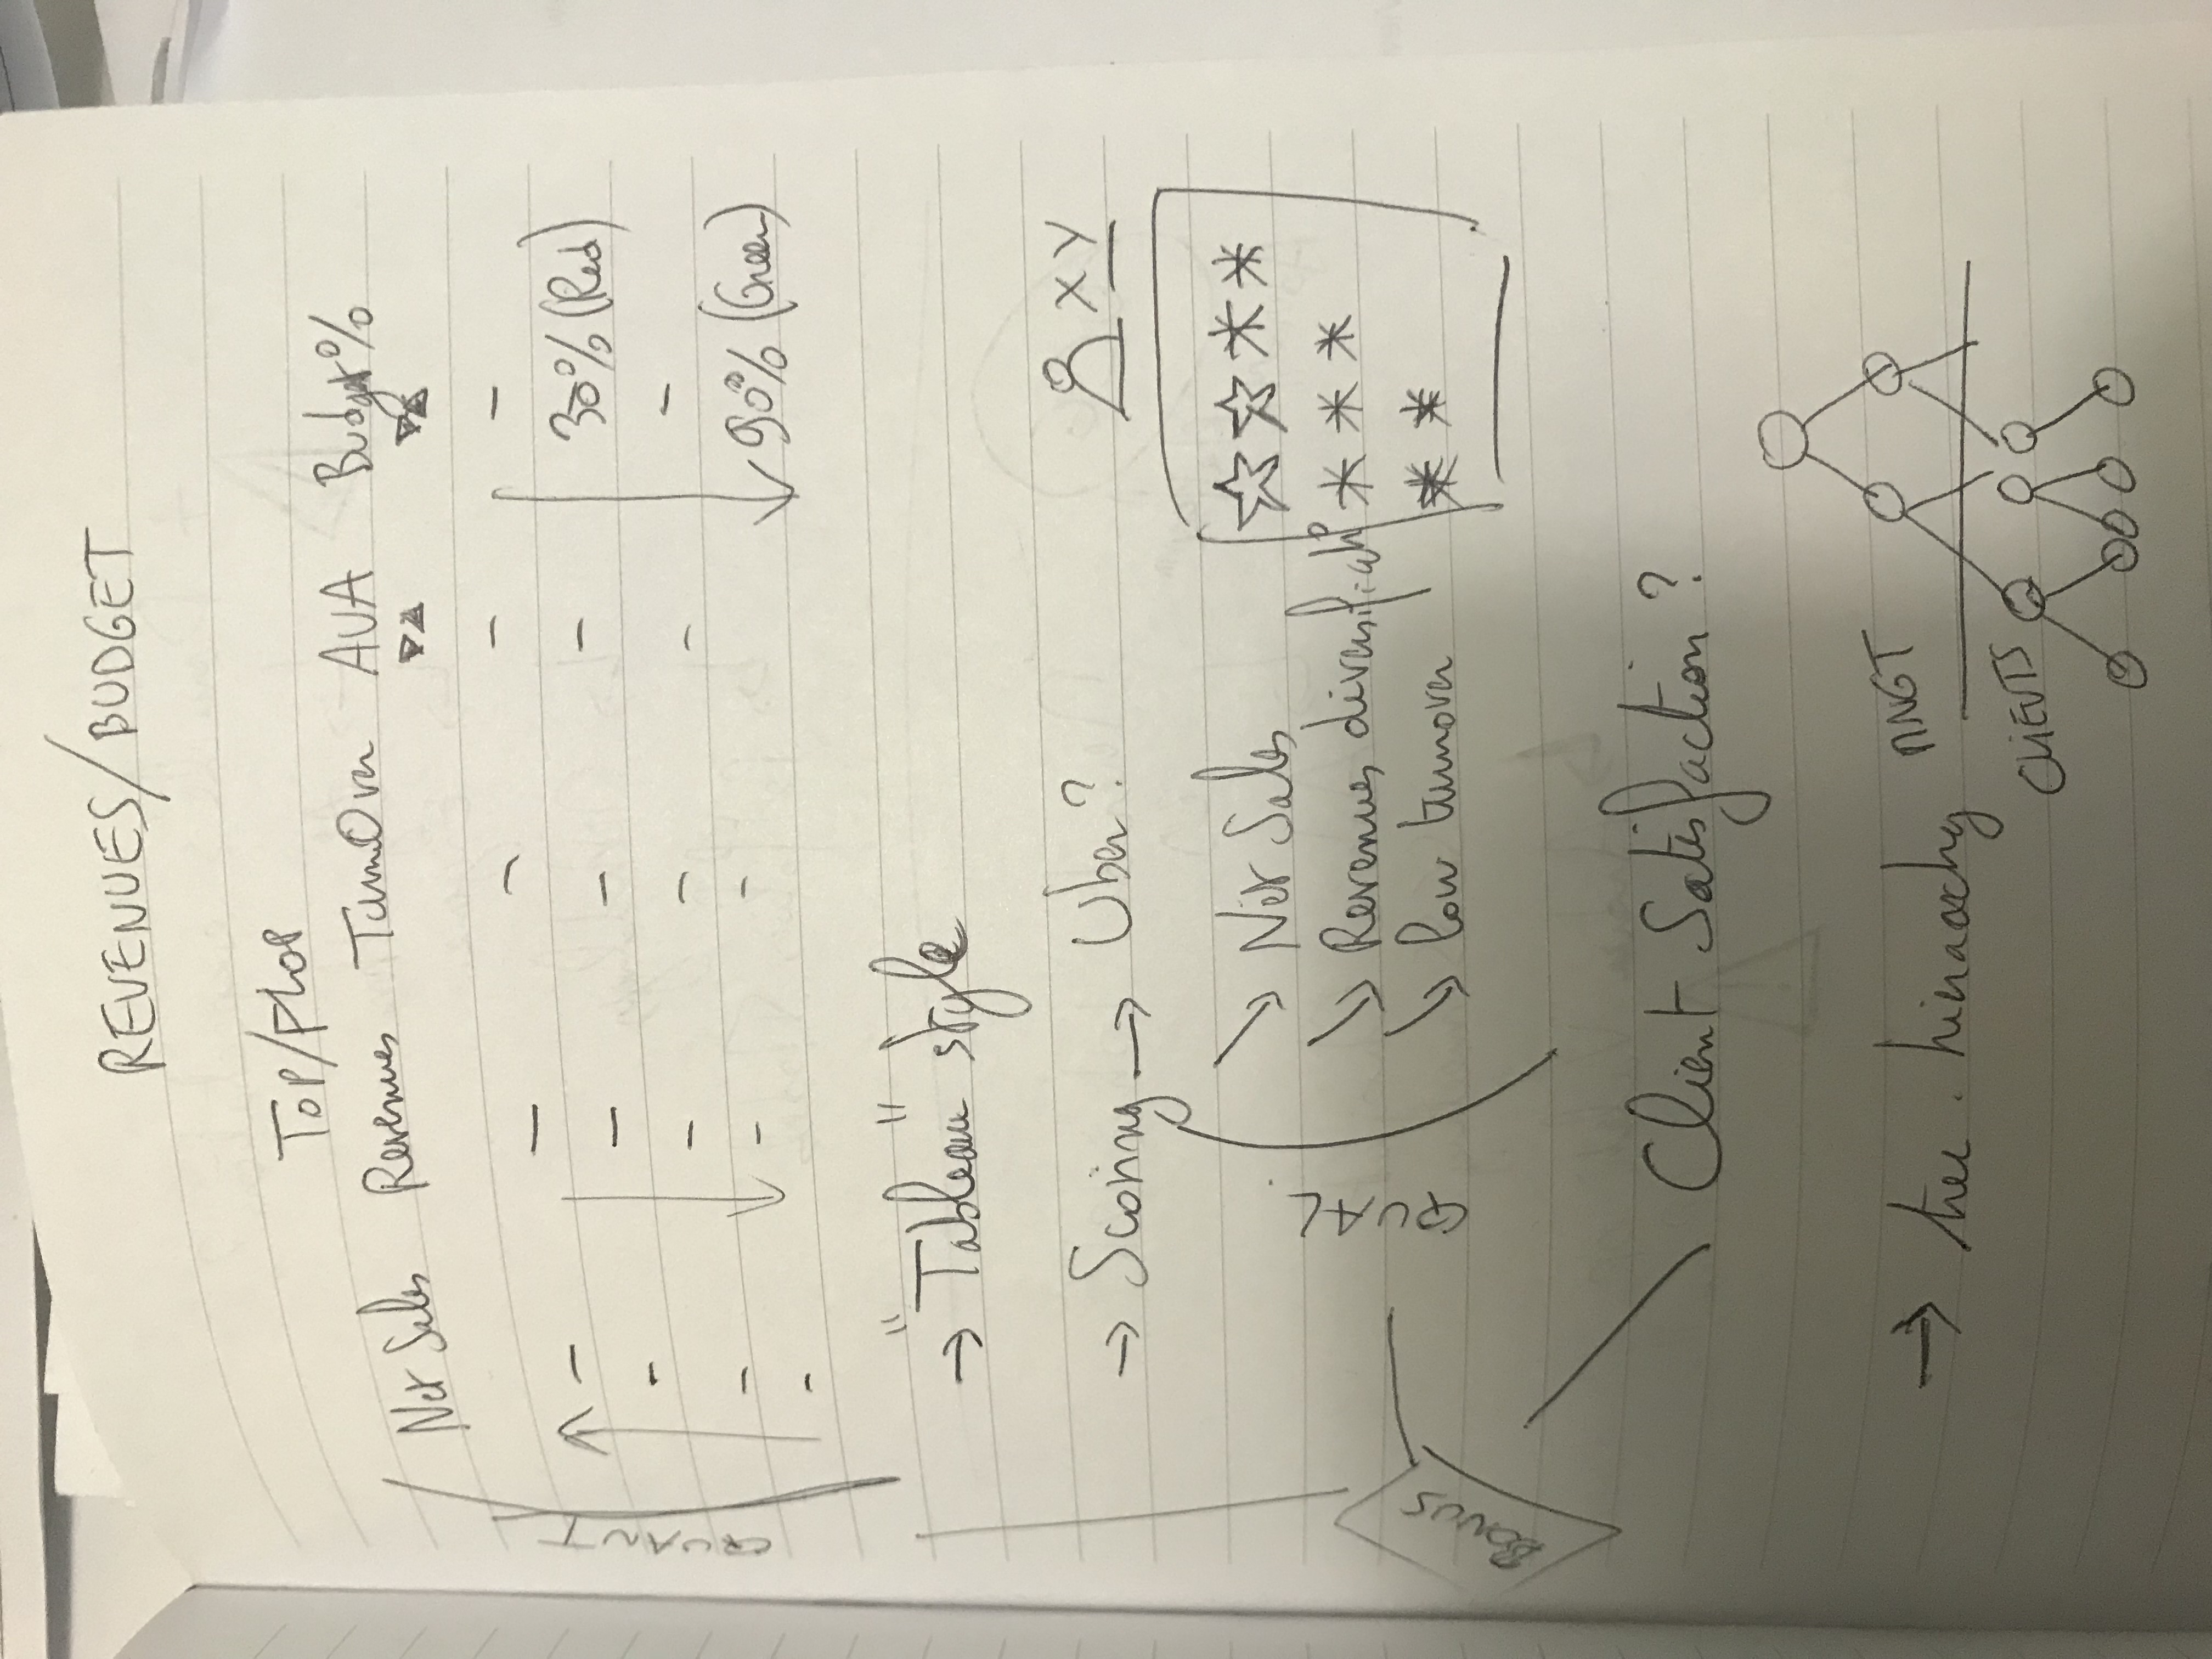 REVENUES/BUDGET
TOP/FLOP
Net Sales Revenues TurnOver AUA Budget%
QUANT
30% (Red)
90% (Green)
→ "Tableau" style
→ Scoring → Uber? XY
QUAL.
↘ Net Sales
↘ Revenues diversificat°
↘ low turnover
BONUS
Client Satisfaction?
→ tree. hierarchy
MNGT
CLIENTS